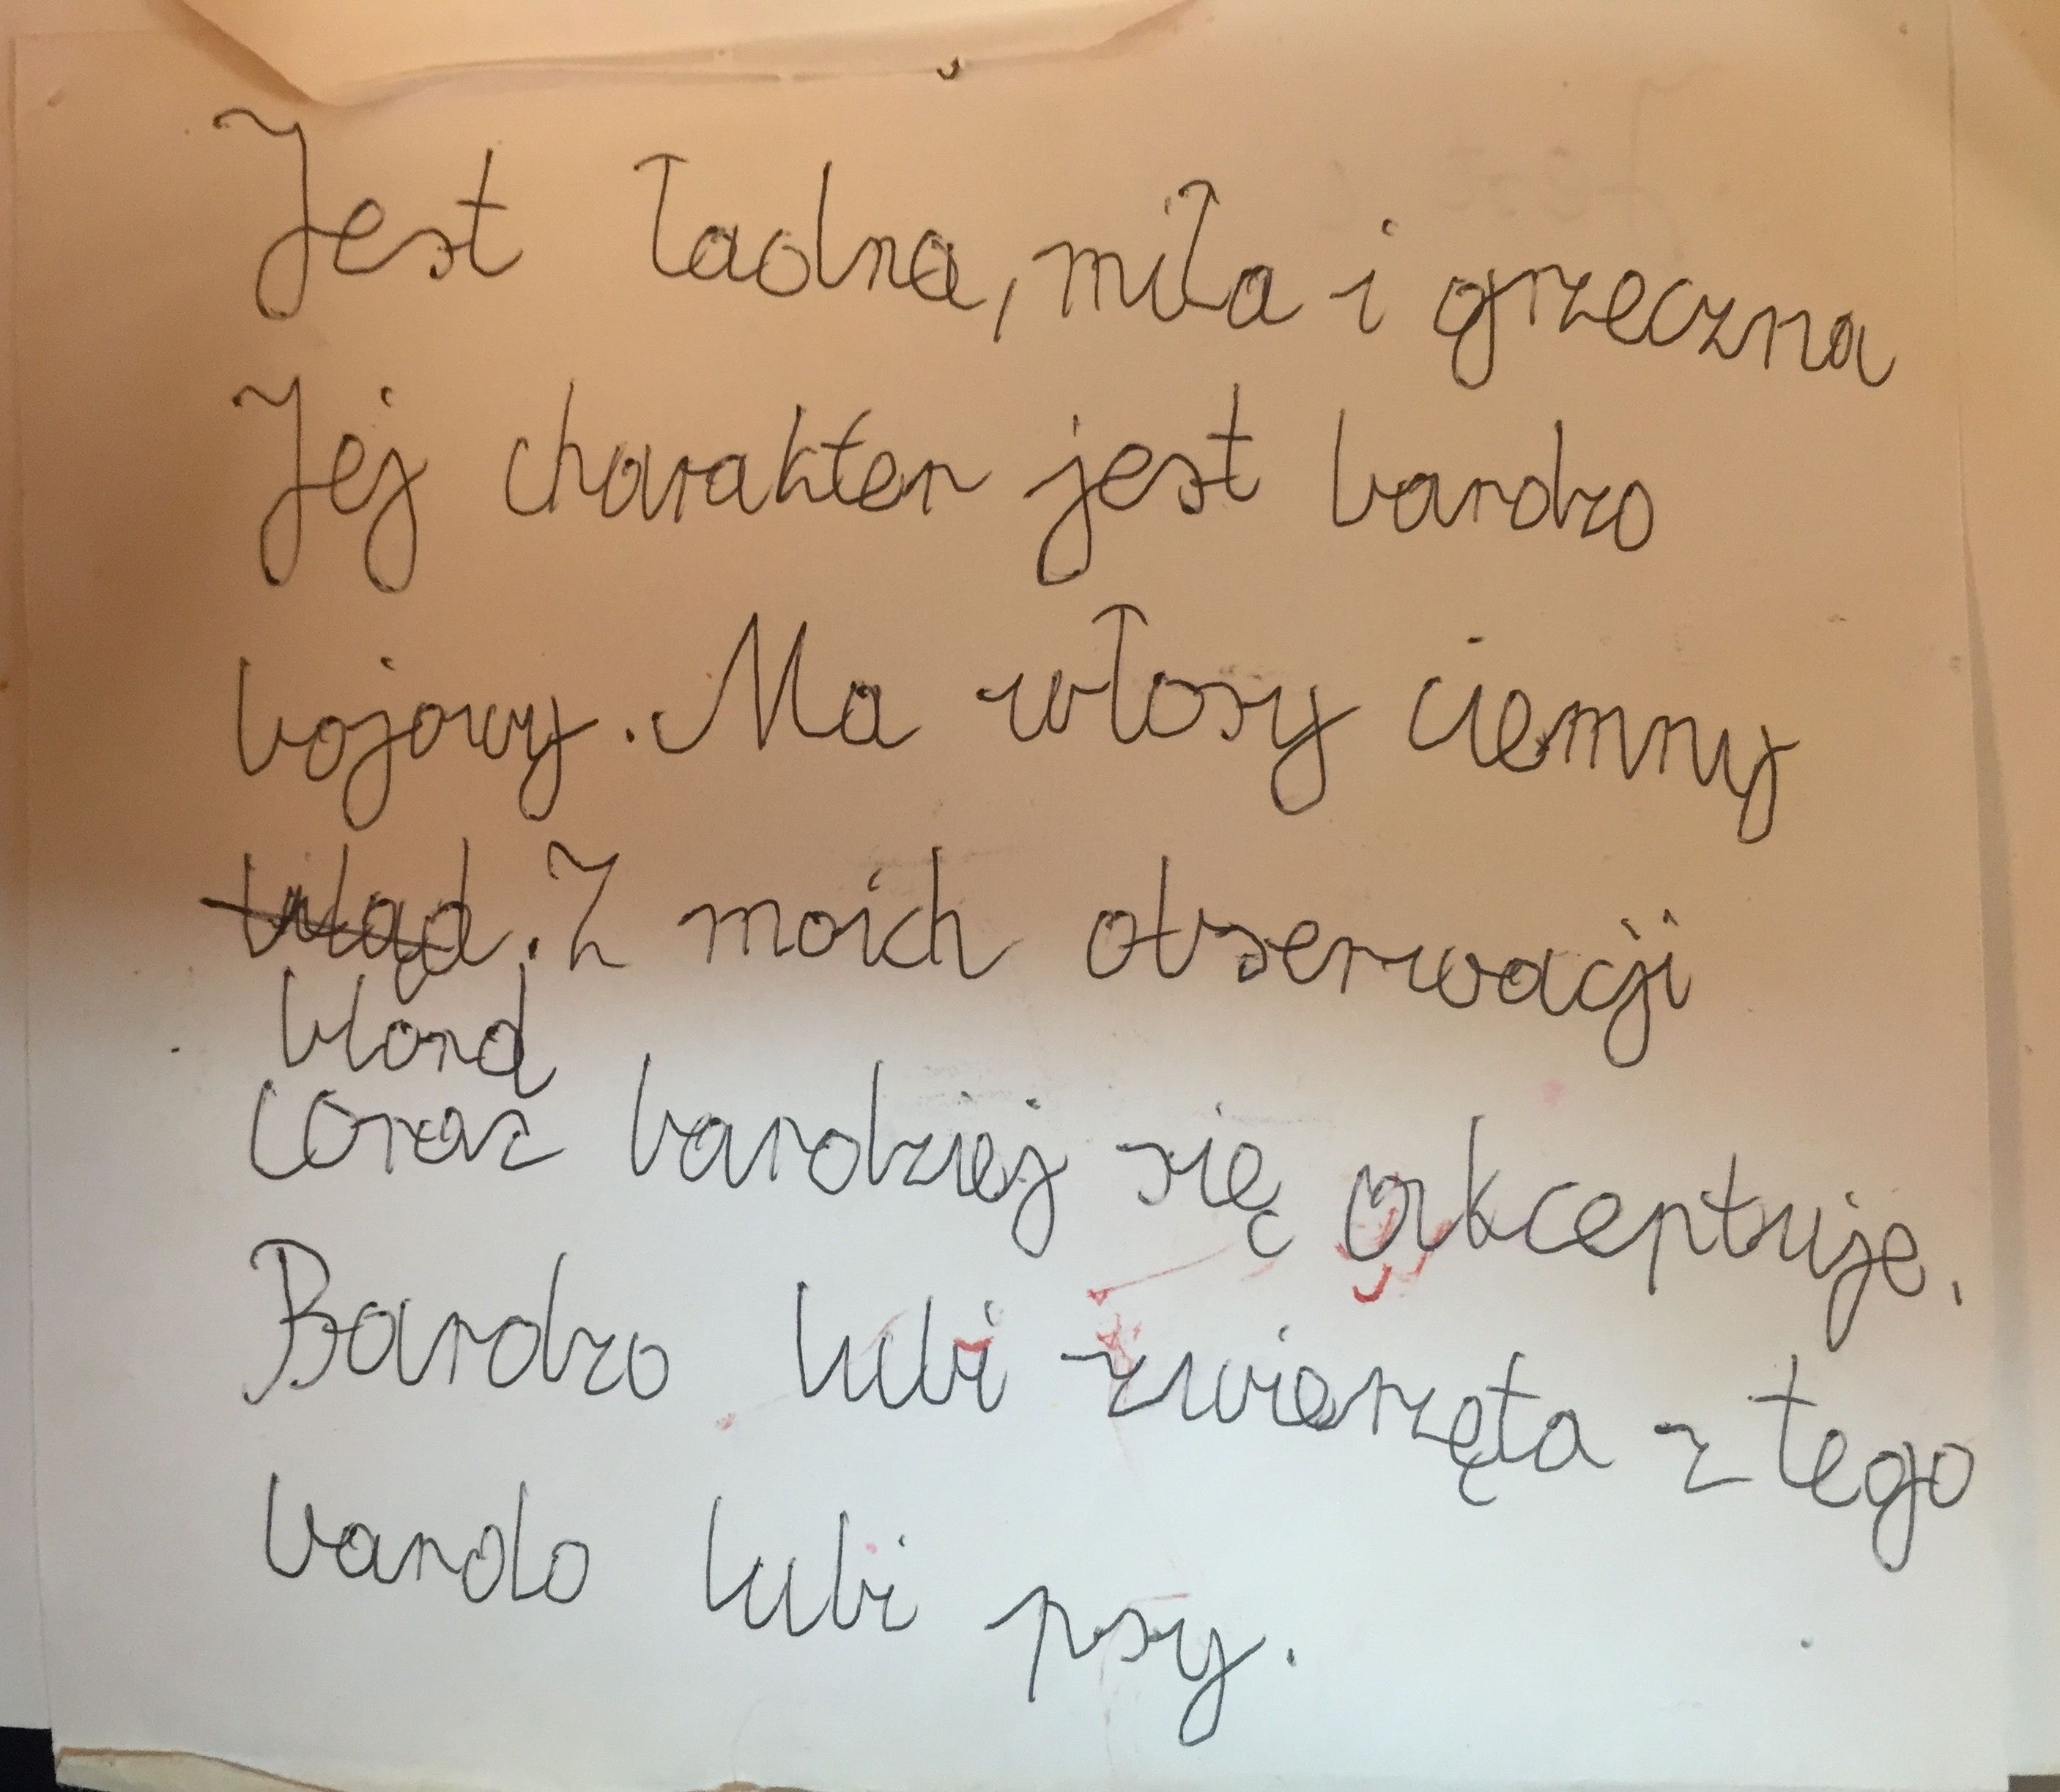 Jest ładna, miła i grzeczna
Jej charakter jest bardzo
bojowy. Ma włosy ciemny
bląd. Z moich obserwacji
blond
coraz bardziej się akceptuje.
Bardzo lubi zwierzęta z tego
bardo lubi psy.